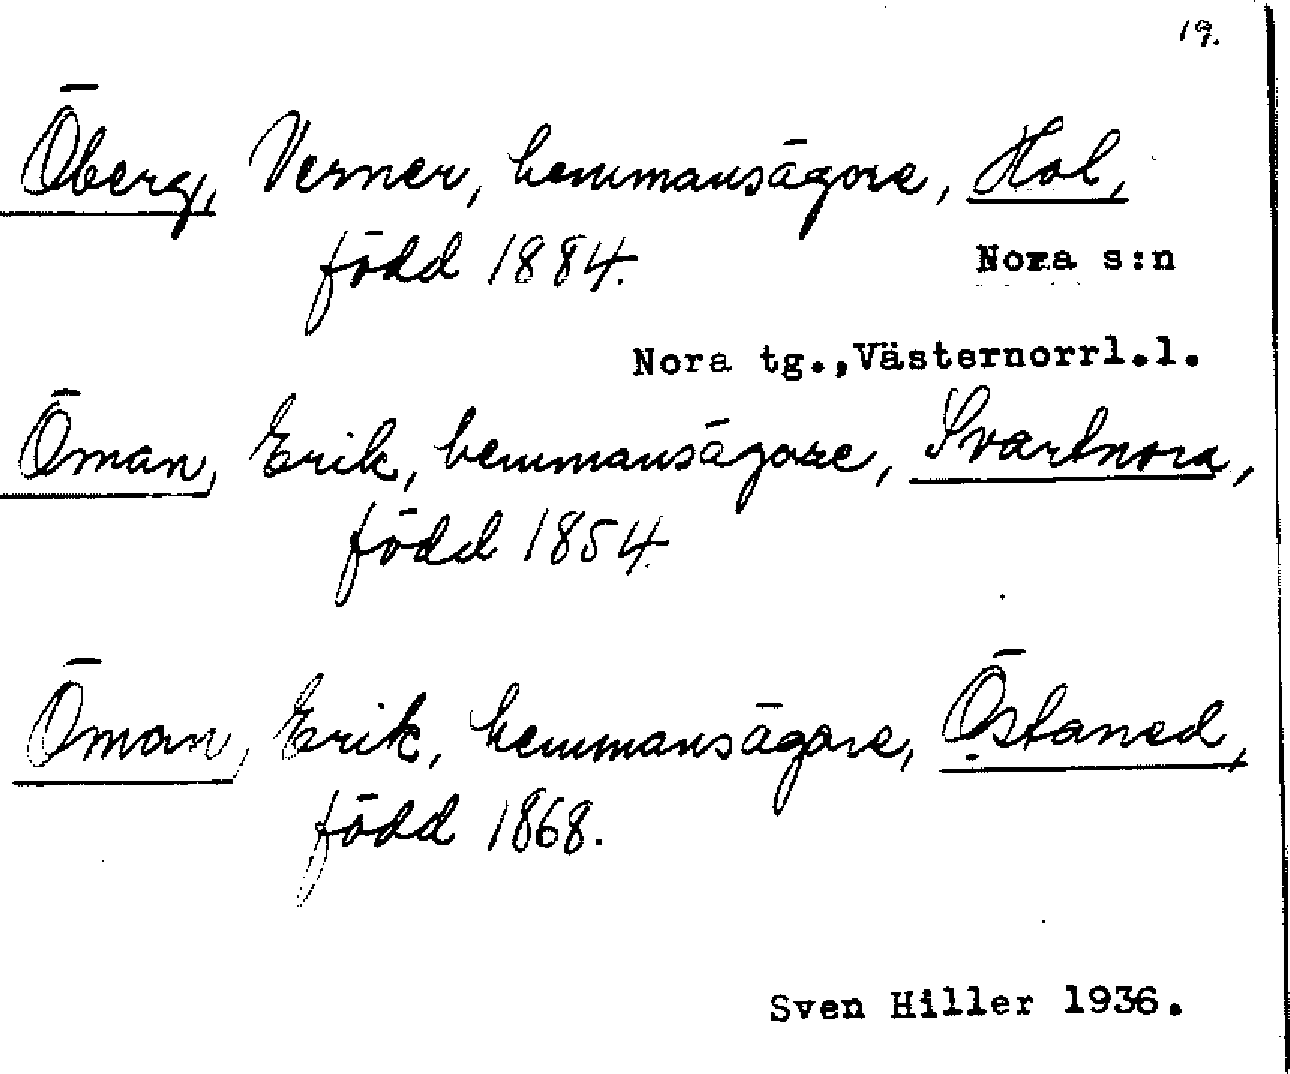 19.
Öberg, Verner, hemmansägare, Hol,
född 1884.
Nora s:n
Nora tg.,Västernorrl.l.
Öman, Erik, hemmansägare, Svartnora,
född 1854.
Öman, Erik, hemmansägare, Östaned,
född 1868.
Sven Hiller 1936.